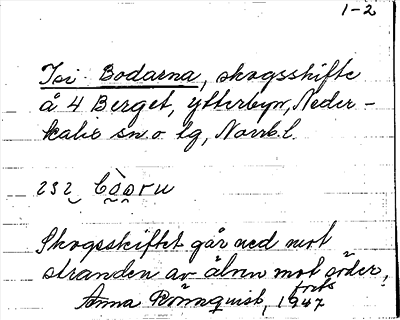 1-2
Isi Bodarna, skogsskifte
å 4 Berget, Ytterbyn, Neder-
kalix sn o. lg, Norrb. l.
Skogsskiftet går ned mot
stranden av älven mot söder.
forts
Anna Rönnquist, 1947